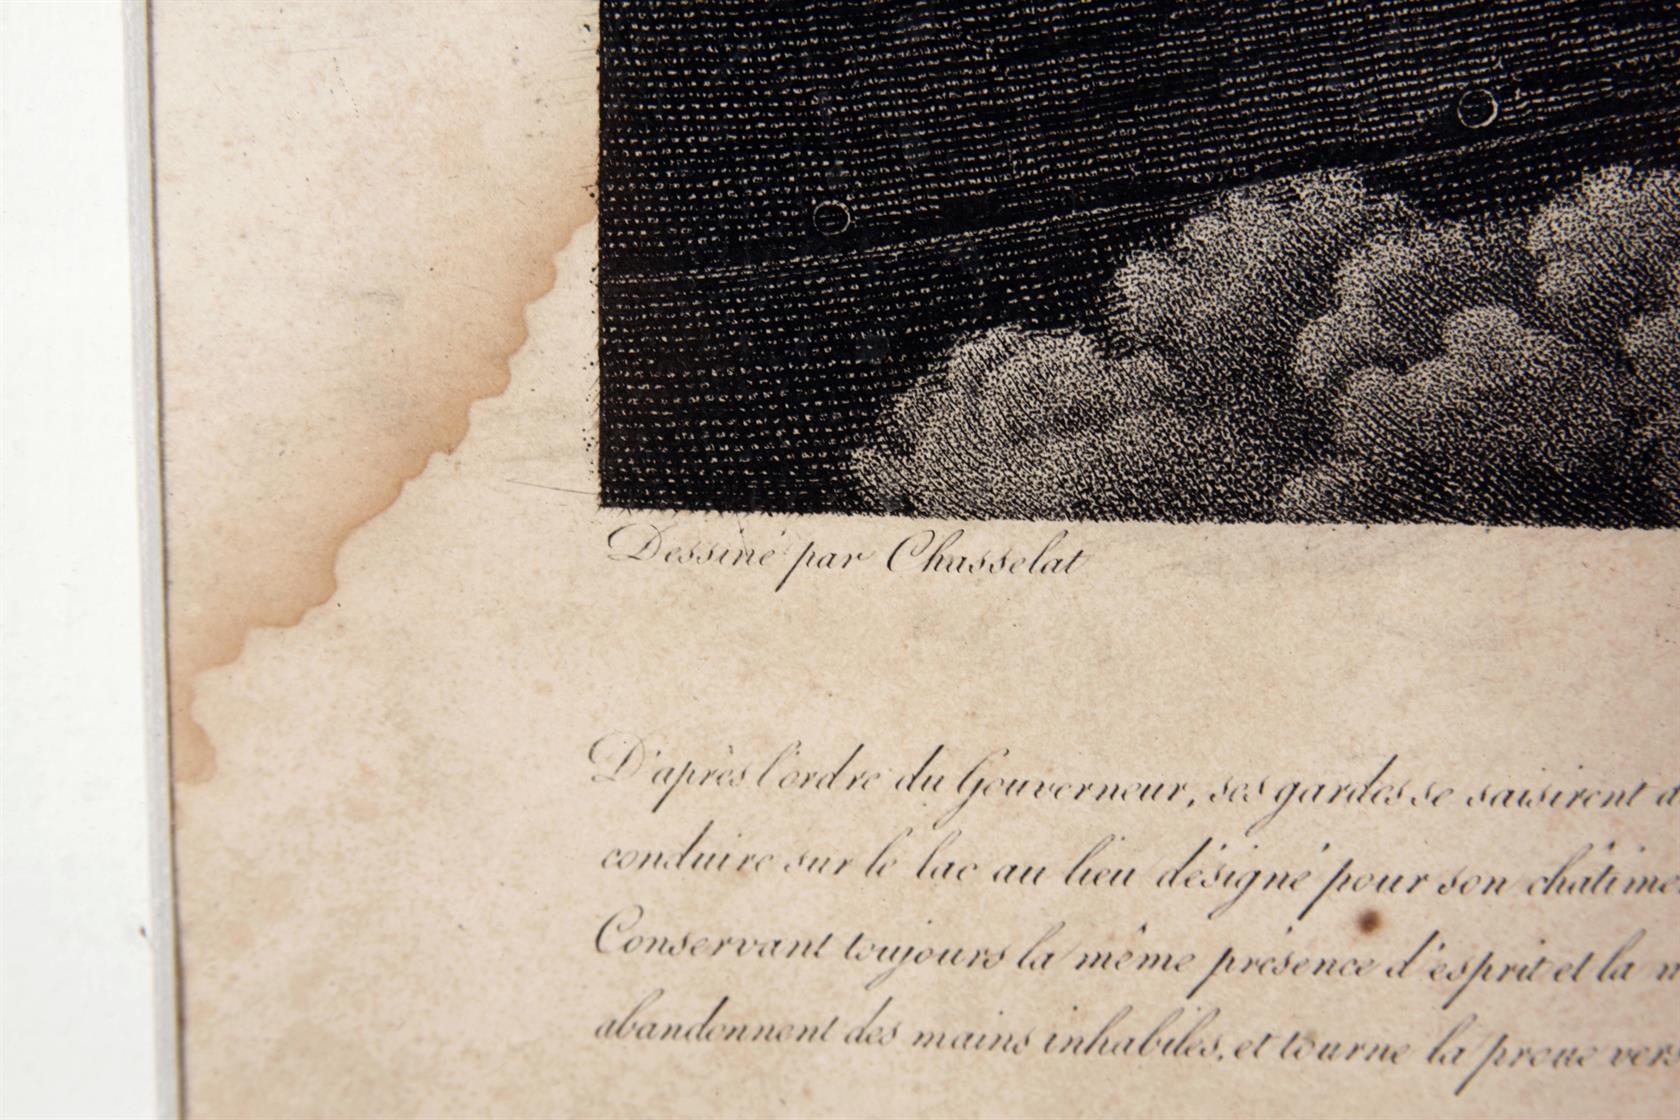 Dessiné par Chasselat
D'après l'ordre du Gouverneur, ses gardes se saisirent d
conduire sur le lac au lieu désigné pour son châtime
Conservant toujours la même présence d'esprit et la
abandonnent des mains inhabiles, et tourne la proue vers